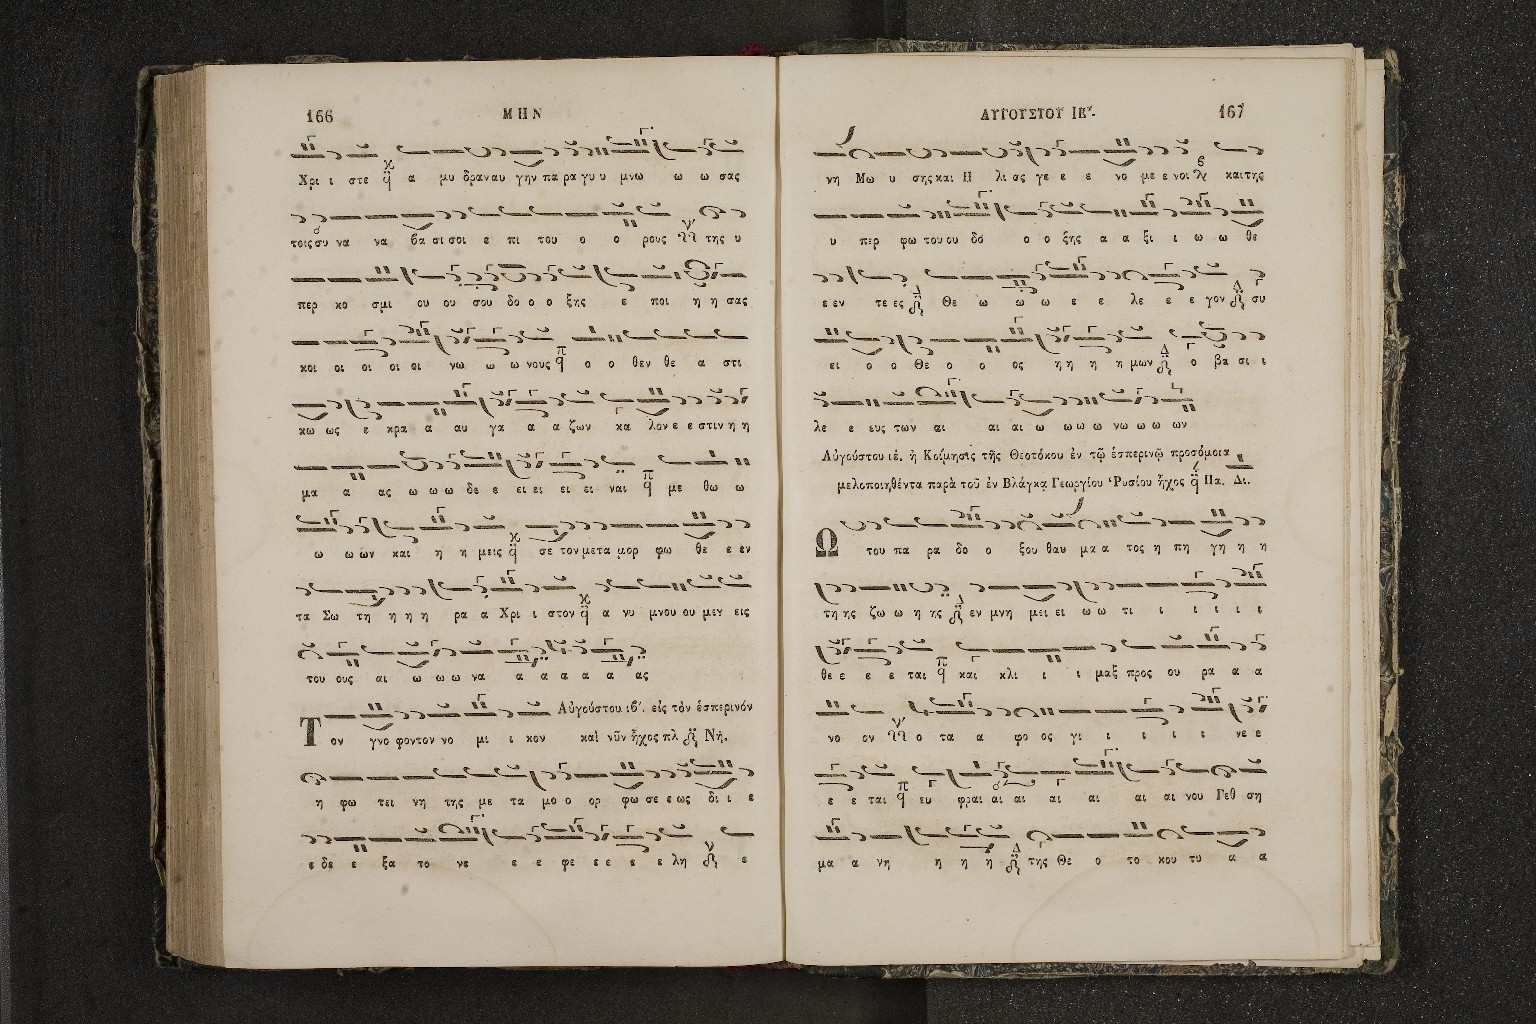 166 ΜΗΝ
Χρι ι στε α μυ δραν αυ γην πα ρα γυ υ μνω ω ω σας
τοις συ να να βα σι σοι ε πι του ο ο ρους της υ
περ κο σμι ου ου σου δο ο ο ξης ε ποι η η σας
κοι οι οι οι οι νω ω ω νους ο ο θεν θε α στι
κω ως ε κρα α αυ γα α α ζων κα λον ε ε στιν η η
μα α ας ω ω ω δε ε ει ει ει ει ναι με θω ω
ω ω ων και η η μεις σε τον μετα μορ φω θε ε εν
τα Σω τη η η η ρα α Χρι ι στον α νυ μνου ου μεν εις
του ους αι ω ω ω να α α α α α ας
Αὐγούστου ιβ΄. εἰς τὸν ἑσπερινόν
Τ ον γνο φον τον νο μι ι κον καὶ νῦν ἦχος πλ Νή.
η φω τει νη της με τα μο ο ορ φω σε ε ως δι ι ε
ε δε ε ξα το νε ε ε φε ε ε ε ε λη ε
ΑΥΓΟΥΣΤΟΥ ΙΒ΄. 167
νη Μω υ σης και Η λι ας γε ε ε νο με ε νοι και της
υ περ φω του ου δο ο ο ξης α α ξι ι ω ω θε
ε εν τε ες Θε ω ω ω ε ε λε ε ε γον συ
ει ο ο Θε ο ο ος η η η η μων ο βα σι ι
λε ε ευς των αι αι αι ω ω ω ω νω ω ω ων
Αὐγούστου ιέ. ἡ Κοίμησις τῆς Θεοτόκου ἐν τῷ ἑσπερινῷ προσόμοια
μελοποιηθέντα παρὰ τοῦ ἐν Βλάγκᾳ Γεωργίου Ῥυσίου ἦχος Πα. Δι.
Ω του πα ρα δο ο ξου θαυ μα α τος η πη γη η η
τη ης ζω ω η ης εν μνη μει ει ω ω τι ι ι ι ι ι
θε ε ε ε ται και κλι ι ι μαξ προς ου ρα α α
νο ον ο τα α φο ος γι ι ι ι ι νε ε
ε ε ται ευ φραι αι αι αι αι αι αι νου Γεθ ση
μα α νη η η η της Θε ο το κου το α α